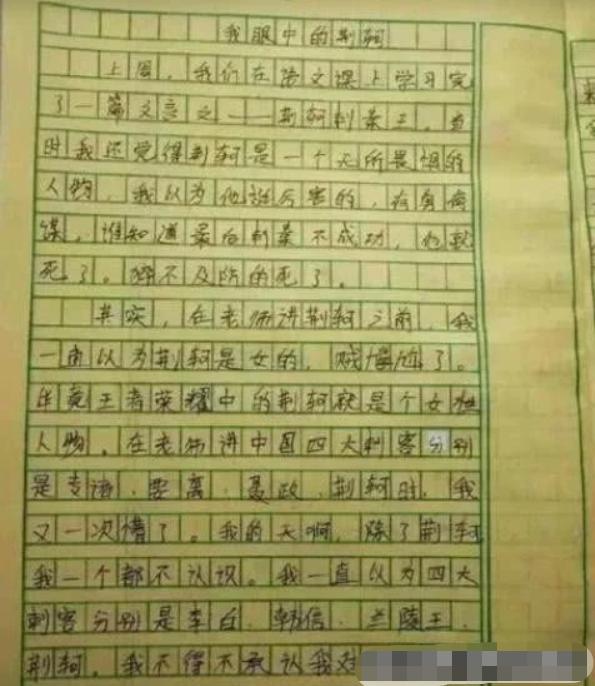 我眼中的荆轲
上周，我们在语文课上学习完
了一篇文言文——荆轲刺秦王。当
时我还觉得荆轲是一个无所畏惧的
人物，我以为他挺厉害的，有勇有
谋，谁知道最后刺秦不成功，他就
死了。猝不及防的死了。
其实，在老师讲荆轲之前，我
一直以为荆轲是女的，贼尴尬了。
毕竟王者荣耀中的荆轲就是个女性
人物。在老师讲中国四大刺客分别
是专诸、要离、聂政、荆轲时，我
又一次懵了。我的天啊，除了荆轲
我一个都不认识。我一直以为四大
刺客分别是李白、韩信、兰陵王、
荆轲。我不得不承认我对